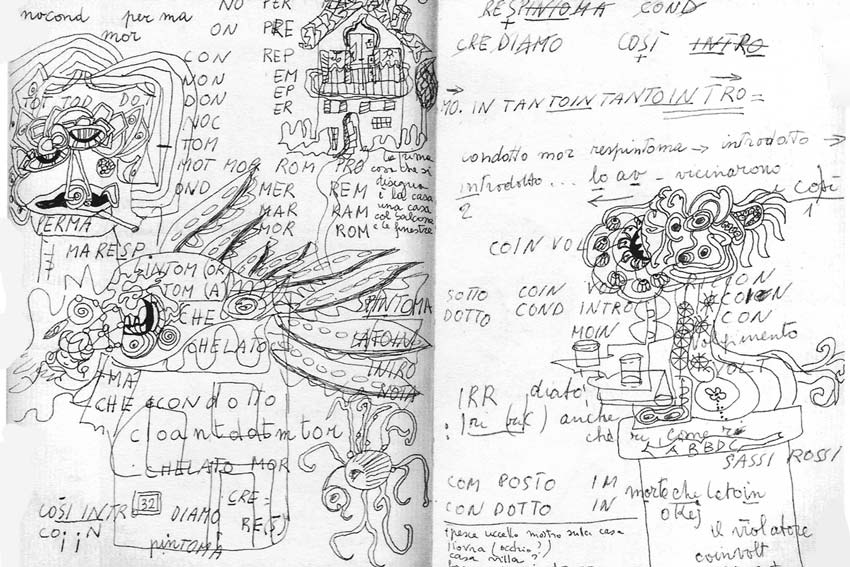 NO PER
nocond per ma ON PRE
mor
CON REP
NON EM
TOT TOD DOT DON EP
NOC ER
TOM
MOT MOR ROM PRO
OND MER REM
MAR RAM
MOR ROM
la prima
cosa che si
disegna
è la casa
una casa
col balcone
e le finestre
VERMA
MARESP
SINTOM (OR)
TOM (A) SPINTOMA
CHE
CHELATO INTRO
NOIA
IMA
CHE CONDOTTO
cloantdatmtor
CHELATO MOR
COSÌ INTRO 32 DIAMO CRE=
CO I I N RE(S)
pintomà
RESPINTOMA COND
CREDIAMO COSÌ INTRO
MO. IN TANTOINTANTOINTRO=
condotto mor respintoma → introdotto →
introdotto... lo av - vicinarono
2 e così
1
COIN VOL
SOTTO COIN VO CION
DOTTO COND INTRO COIN
MOIN CON
volpimento
VOLT
IRR diato
Iri (bile) anche
che ri come
ABBDC
SASSI ROSSI
COM POSTO IM
CONDOTTO IN
morto che letoin
okej
pesce uccello mostro sulla casa
(occhio?)
casa villa?
il violatore
coinvolt